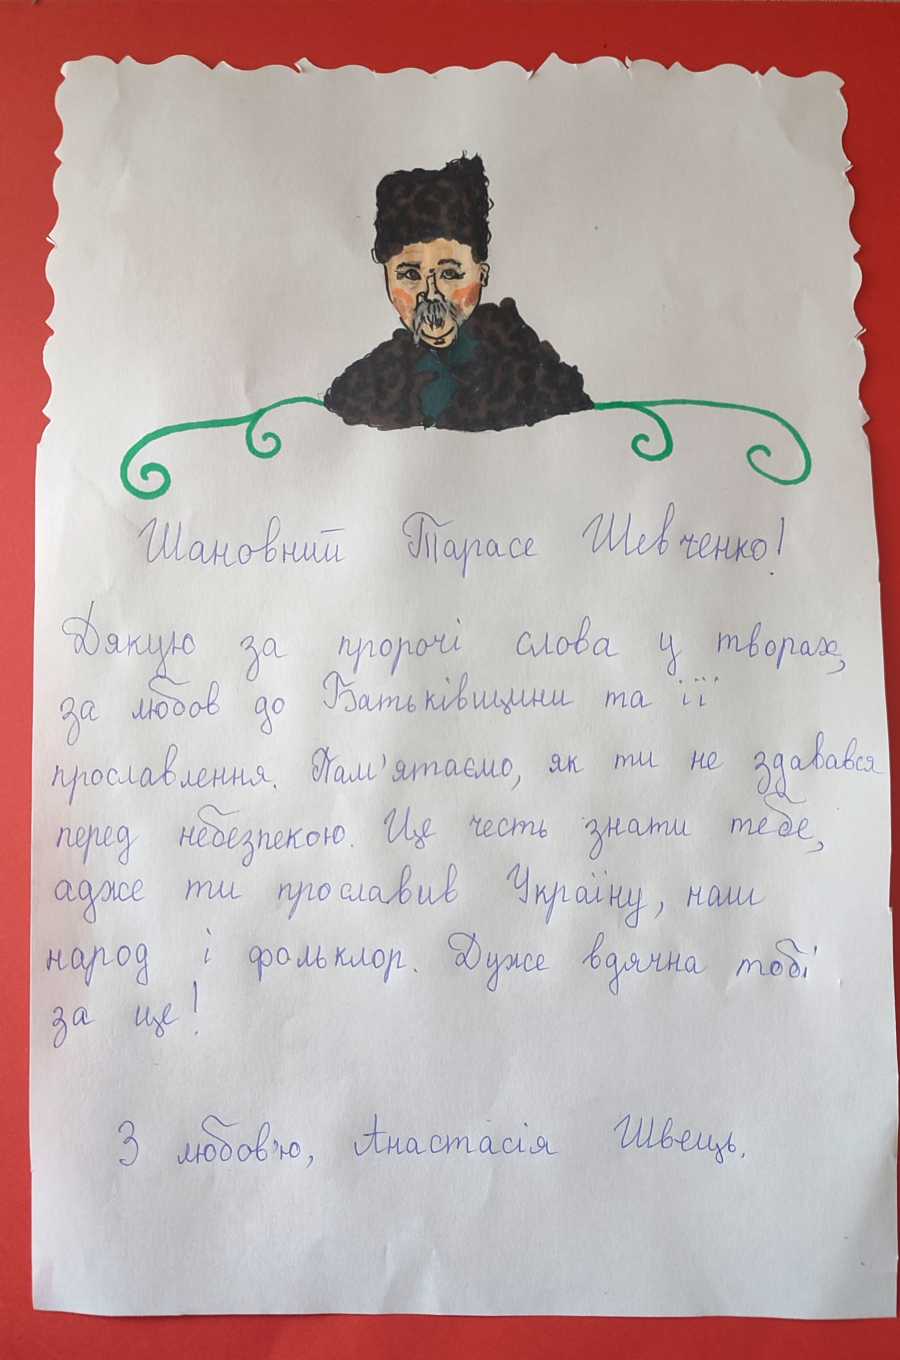 Шановний Тарасе Шевченко!
Дякую за пророчі слова у творах,
за любов до Батьківщини та її
прославлення. Пам'ятаємо, як ти не здавався
перед небезпекою. Це честь знати тебе,
адже ти прославив Україну, наш
народ і фольклор. Дуже вдячна тобі
за це!
З любов'ю, Анастасія Швець.